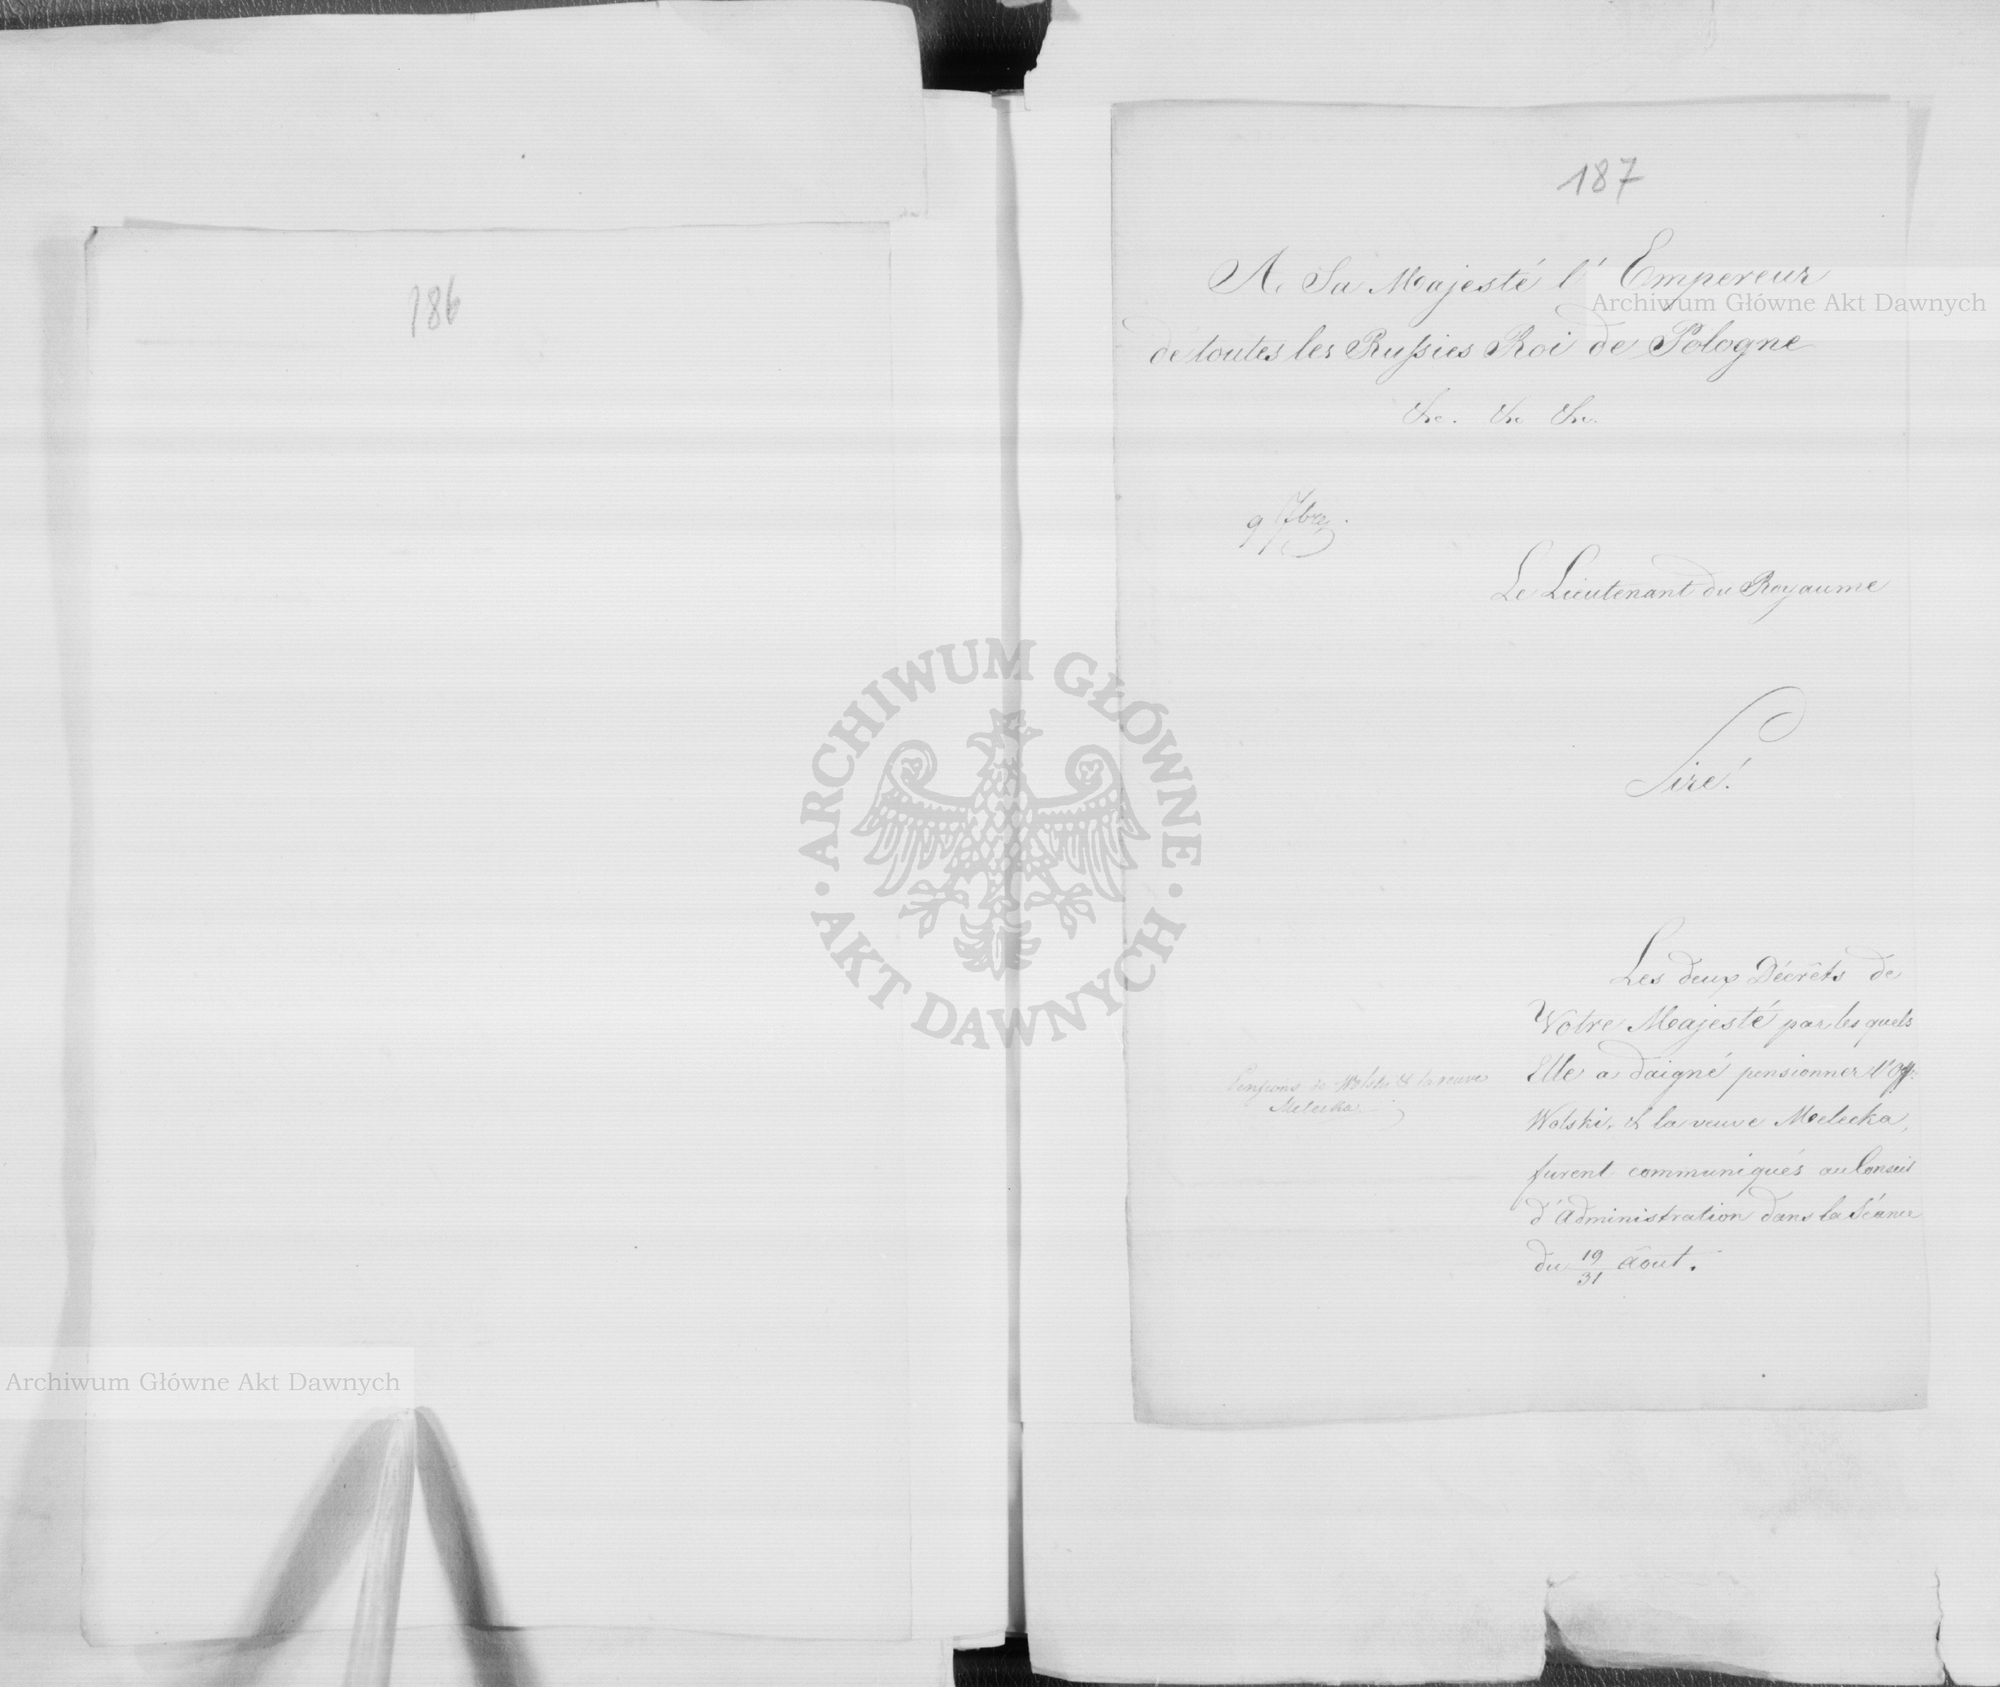 186
187
A. Sa Majesté l'Empereur
de toutes les Russies Roi de Pologne
&c. &c &c.
9 7bre.
Le Lieutenant du Royaume
Sire!
Les deux Décrêts de
Votre Majesté par les quels
Elle a daigné pensionner l'Off:
Wolski, & la veuve Melecka,
furent communiqués au Conseil
d'Administration dans la Séance
du 19/31 Août.
Pensions de Wolski & la veuve
Melecka
Archiwum Główne Akt Dawnych
ARCHIWUM GŁÓWNE
AKT DAWNYCH
Archiwum Główne Akt Dawnych